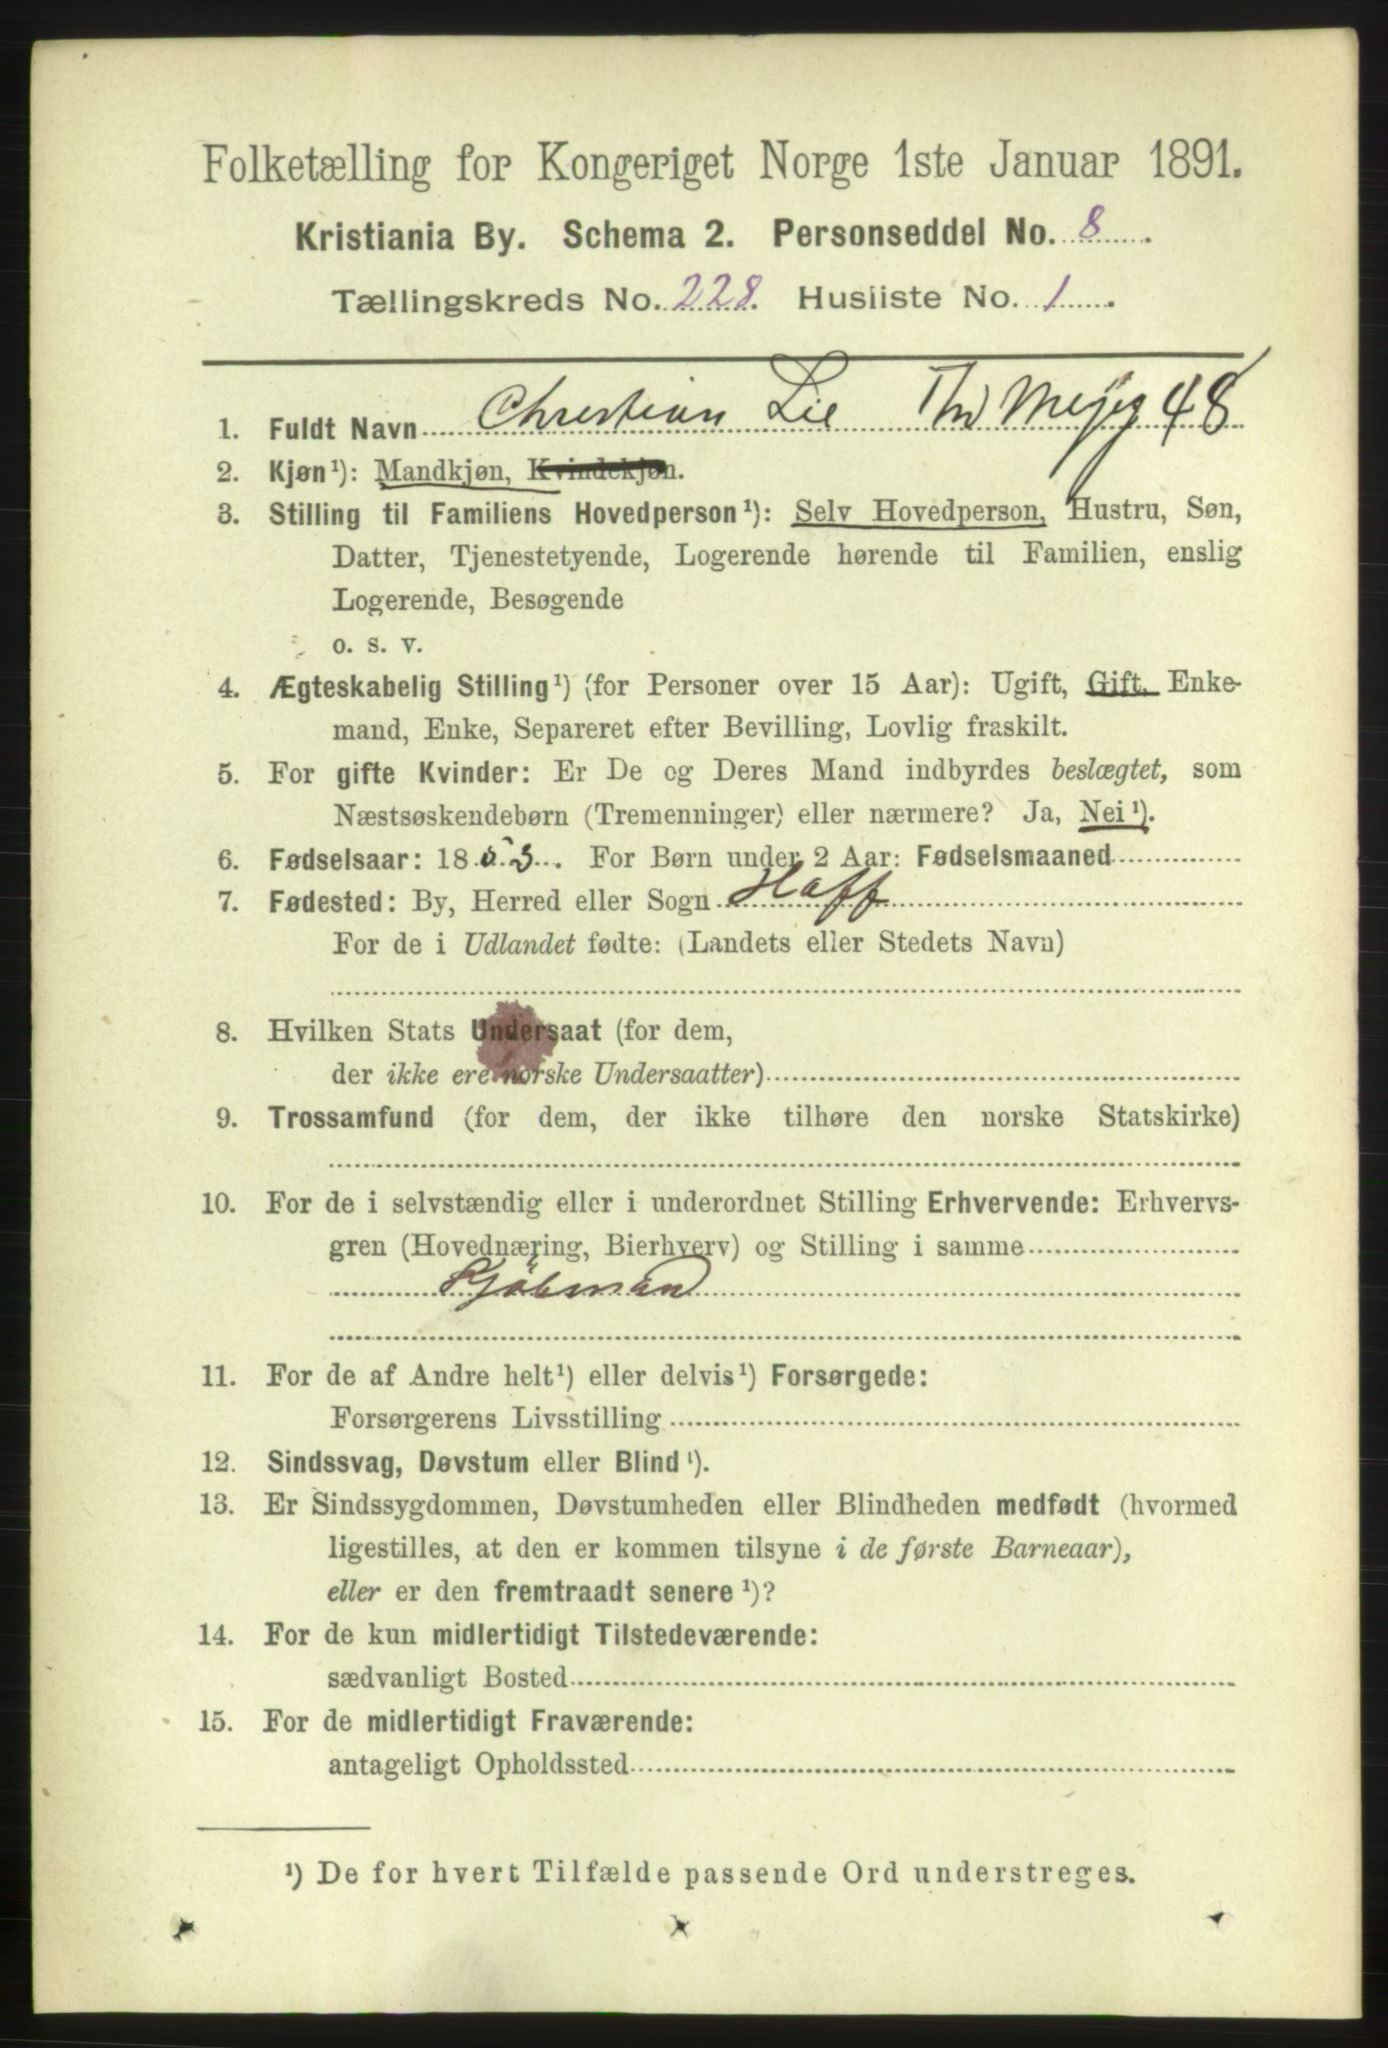 Folketælling for Kongeriget Norge 1ste Januar 1891.
Kristiania By. Schema 2. Personseddel No. 8.
Tællingskreds No. 228. Husliste No. 1.
1. Fuldt Navn Christian Lie Th Meyes 48
2. Kjøn¹): Mandkjøn, Kvindekjøn.
3. Stilling til Familiens Hovedperson¹): Selv Hovedperson, Hustru, Søn,
Datter, Tjenestetyende, Logerende hørende til Familien, enslig
Logerende, Besøgende
o. s. v.
4. Ægteskabelig Stilling¹) (for Personer over 15 Aar): Ugift, Gift, Enke-
mand, Enke, Separeret efter Bevilling, Lovlig fraskilt.
5. For gifte Kvinder: Er De og Deres Mand indbyrdes beslægtet, som
Næstsøskendebørn (Tremenninger) eller nærmere? Ja, Nei¹).
6. Fødselsaar: 1853. For Børn under 2 Aar: Fødselsmaaned
7. Fødested: By, Herred eller Sogn Hoff
For de i Udlandet fødte: (Landets eller Stedets Navn)
8. Hvilken Stats Undersaat (for dem,
der ikke ere norske Undersaatter)
9. Trossamfund (for dem, der ikke tilhøre den norske Statskirke)
10. For de i selvstændig eller i underordnet Stilling Erhvervende: Erhvervs-
gren (Hovednæring, Bierhverv) og Stilling i samme
Kjöbmand
11. For de af Andre helt¹) eller delvis¹) Forsørgede:
Forsørgerens Livsstilling
12. Sindssvag, Døvstum eller Blind¹).
13. Er Sindssygdommen, Døvstumheden eller Blindheden medfødt (hvormed
ligestilles, at den er kommen tilsyne i de første Barneaar),
eller er den fremtraadt senere¹)?
14. For de kun midlertidigt Tilstedeværende:
sædvanligt Bosted
15. For de midlertidigt Fraværende:
antageligt Opholdssted
¹) De for hvert Tilfælde passende Ord understreges.